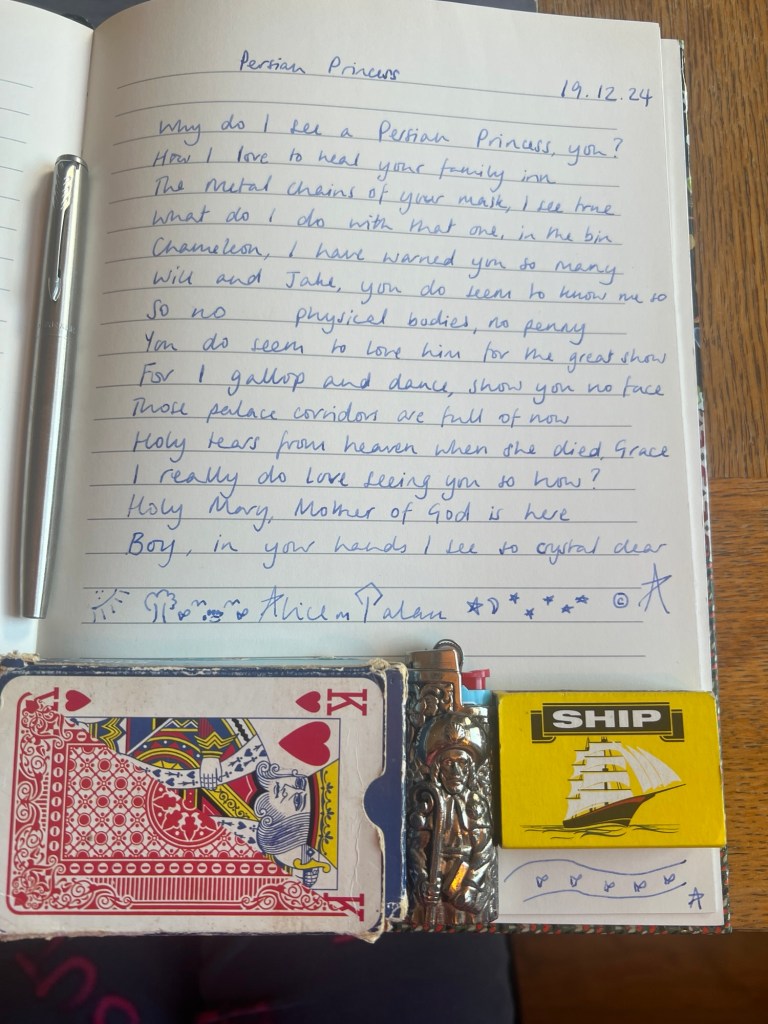 Persian Princess
19.12.24
Why do I see a Persian Princess, you?
How I love to heal your family inn
The metal chains of your mask, I see true
What do I do with that one, in the bin
Chameleon, I have warned you so many
Will and Jake, you do seem to know me so
So no physical bodies, no penny
You do seem to love him for the great show
For I gallop and dance, show you no face
Those palace corridors are full of now
Holy tears from heaven when she died, Grace
I really do love seeing you so how?
Holy Mary, Mother of God is here
Boy, in your hands I see so crystal clear
Alice ©
K
K
SHIP